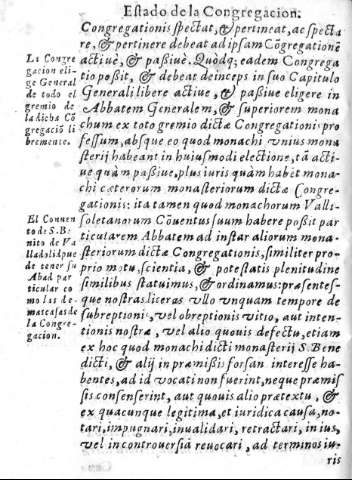 Estado de la Congregacion.
Congregationis spectat, & pertineat, ac specta
re, & pertinere debeat ad ipsam Cõgregationẽ
actiuè, & passiuè. Quòdq; eadem Congrega
tio possit, & debeat deinceps in suo Capitulo
Generali libere actiuè, & passiuè eligere in
Abbatem Generalem, & superiorem mona
chum ex toto gremio dictæ Congregationis pro
fessum, absque eo quod monachi vnius mona
sterij habeant in huiusmodi electione, tã acti-
ue quàm passiue, plus iuris quàm habet mona-
chi cæterorum monasteriorum dictæ Congre-
gationis: ita tamen quod monachorum Valli-
soletanorum Cõuentus suum habere possit par
ticularem Abbatem ad instar aliorum mona-
steriorum dictæ Congregationis, similiter pro-
prio motu, scientia, & potestatis plenitudine
similibus statuimus, & ordinamus: præsentes-
que nostras literas vllo vnquam tempore de
subreptionis, vel obreptionis vitio, aut inten-
tionis nostræ, vel alio quouis defectu, etiam
ex hoc quod monachi dicti monasterij S. Bene
dicti, & alij in præmissis forsan interesse ha-
bentes, ad id vocati non fuerint, neque præmis-
sis consenserint, aut quouis alio prætextu, &
ex quacunque legitima, et iuridica causa, no-
tari, impugnari, inualidari, retractari, in ius,
vel in controuersiã reuocari, ad terminos iu-
ris
La Congre
gacion eli-
ge General
de todo el
gremio de
la dicha Cõ
gregació li
bremente.
El Conuen
to de S. B.
nito de Va
lladolid pue
de tener su
Abad par
ticular co
mo las de-
mas casas de
la Congre-
gacion.